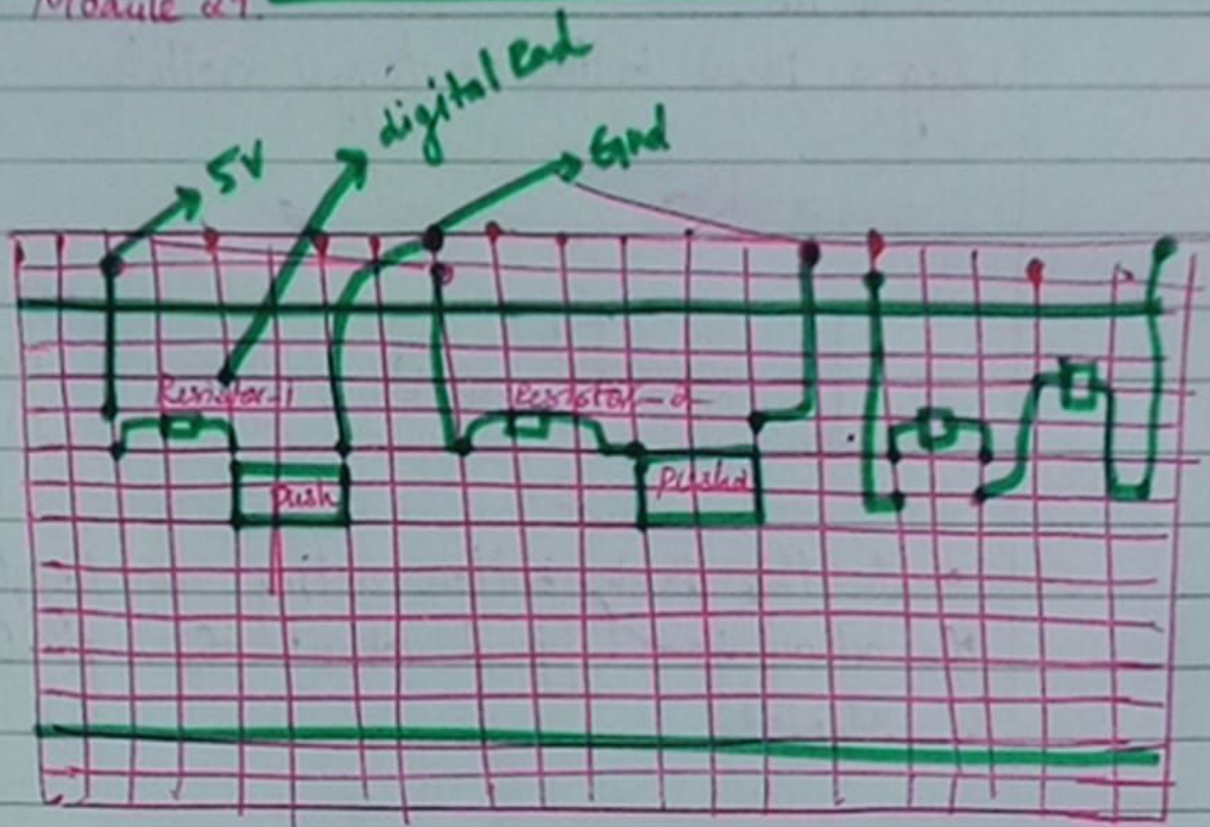 Module 27.
digital Read
5V
Gnd
Resistor-1
Resistor-2
Push
Push2